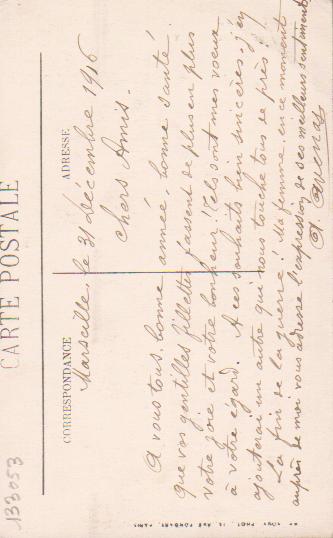 CARTE POSTALE
CORRESPONDANCE
ADRESSE
Marseille, le 31 Décembre 1916
Chers Amis.
A vous tous, bonne année, bonne santé
que vos gentilles fillettes fassent de plus en plus
votre joie et votre bonheur! Tels sont mes voeux
à votre égard. A ces souhaits bien sincères j'en
ajouterai un autre qui nous touche tous de près:
La fin de la guerre! Ma femme, en ce moment
auprès de moi vous adresse l'expression de ses meilleurs sentiments
133053
PHOT., RUE PARIS